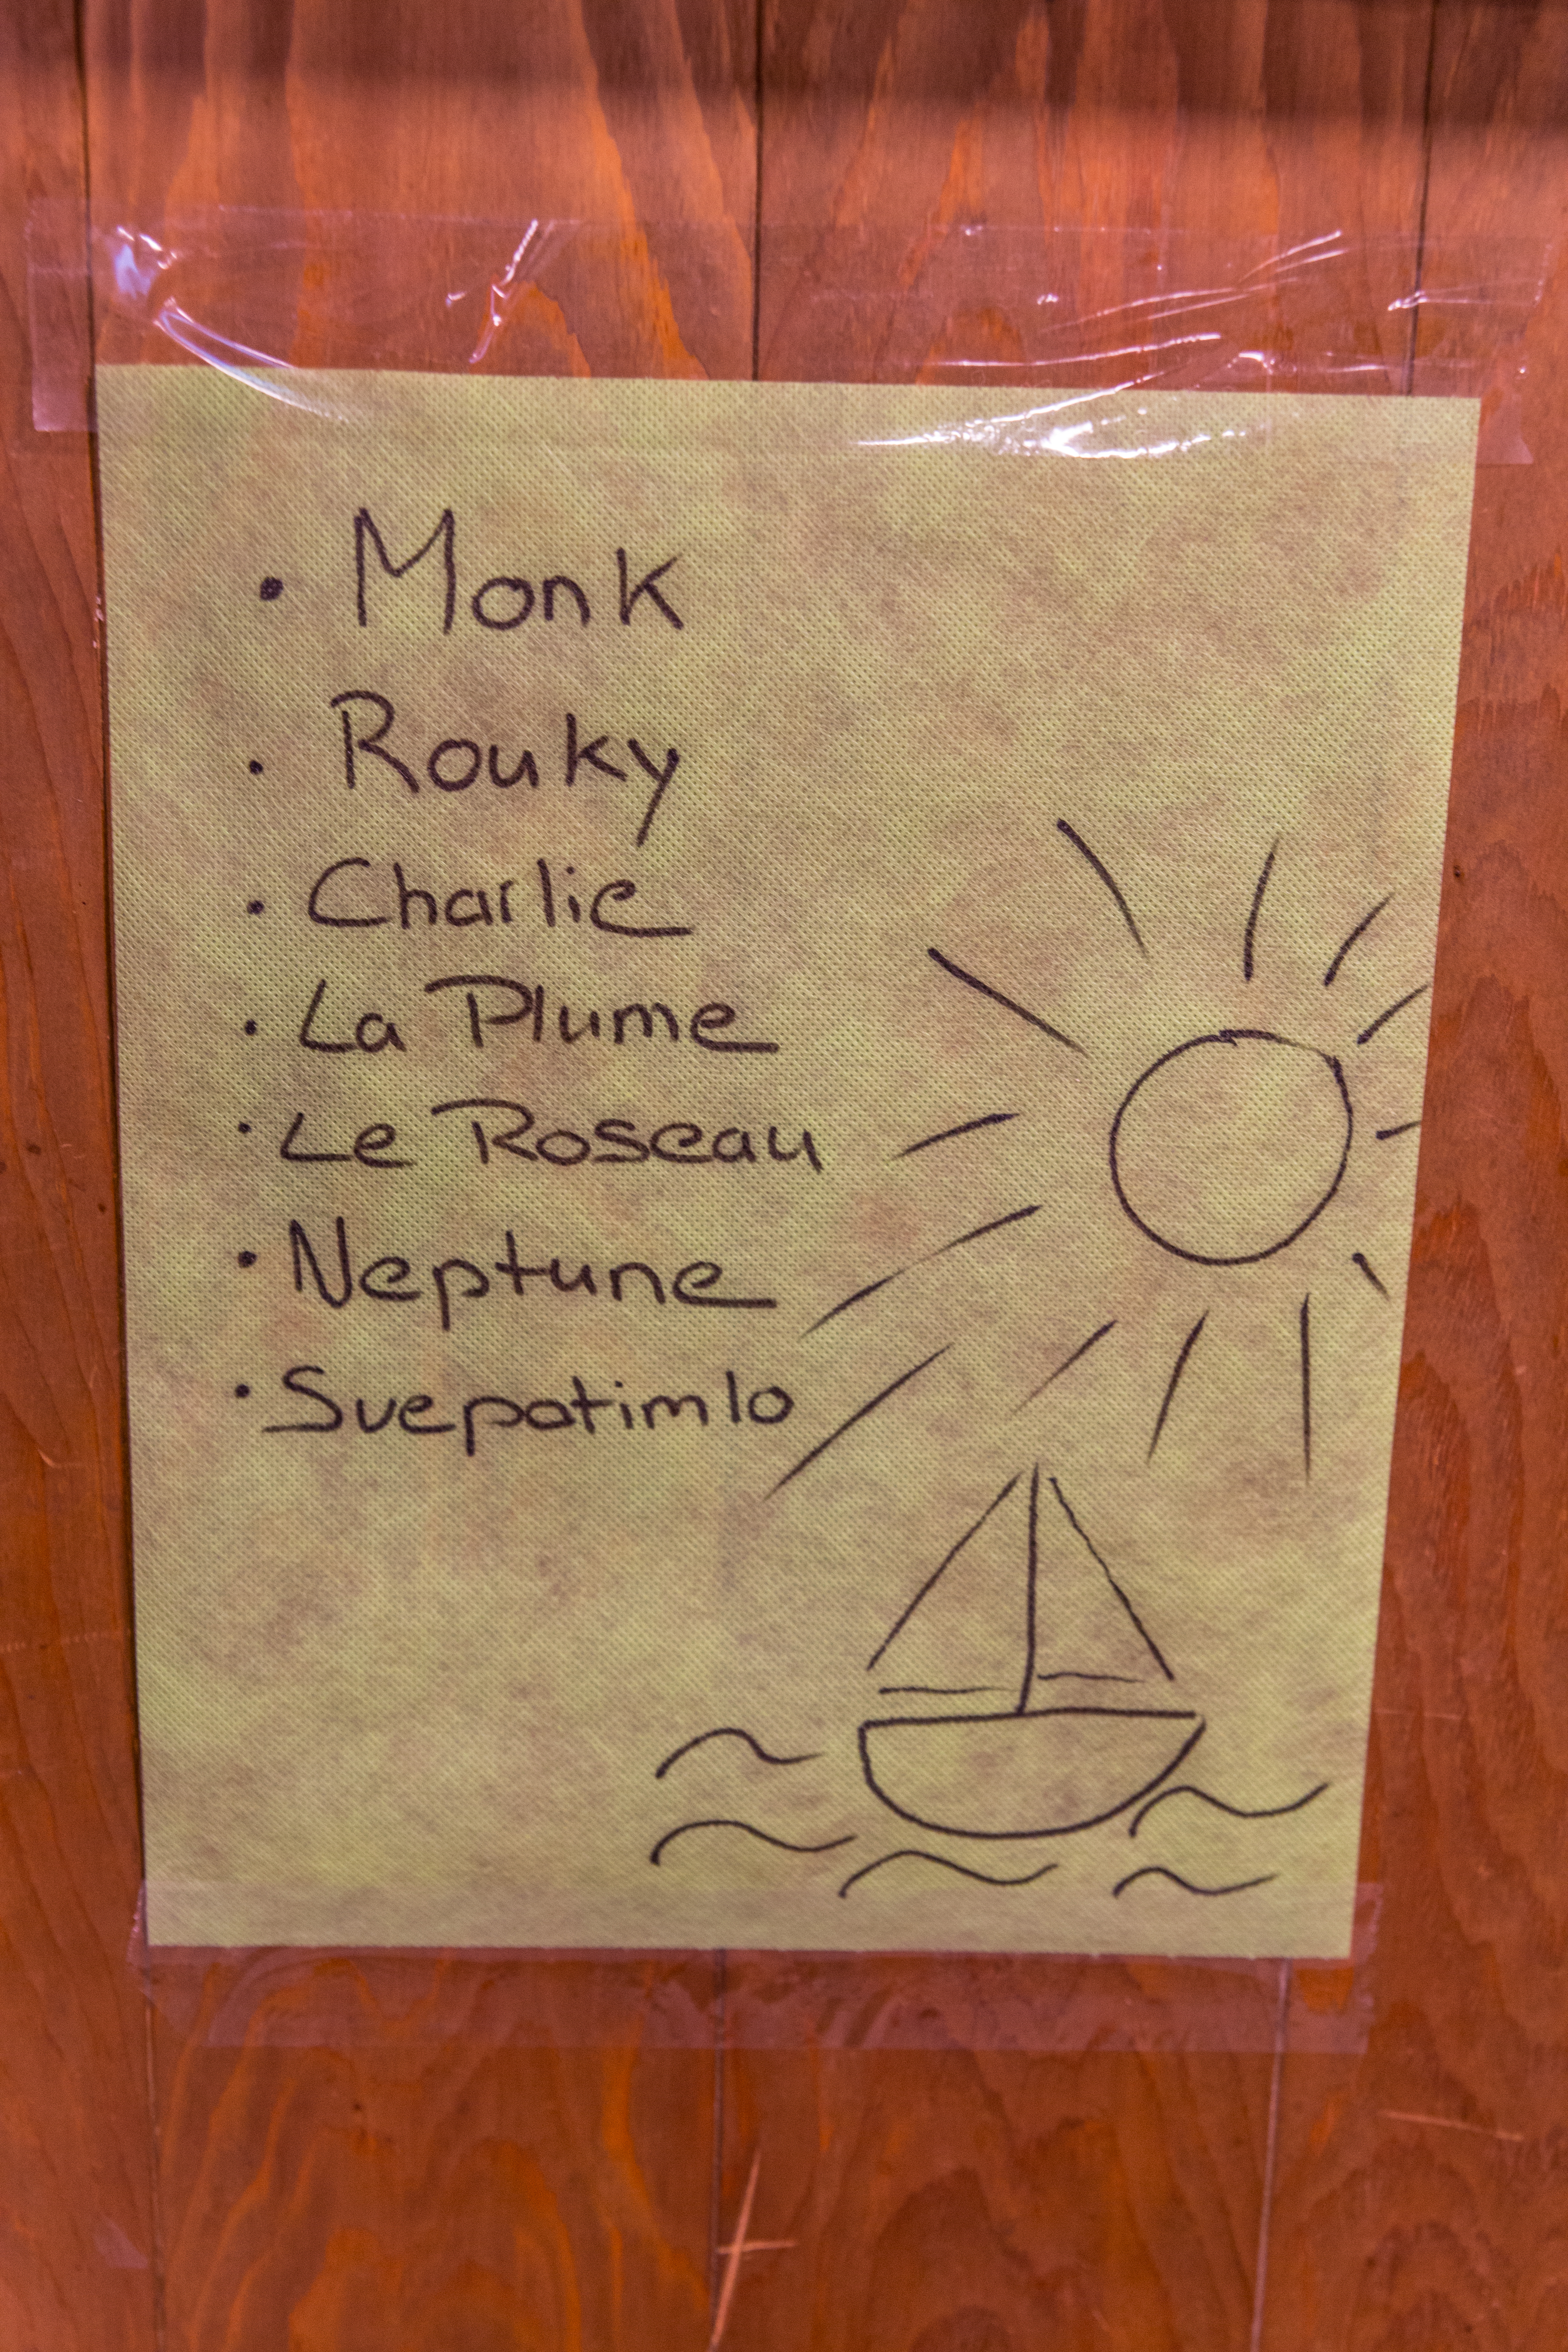 • Monk
• Rouky
• Charlie
• La Plume
• Le Roseau
• Neptune
• Svepotimlo